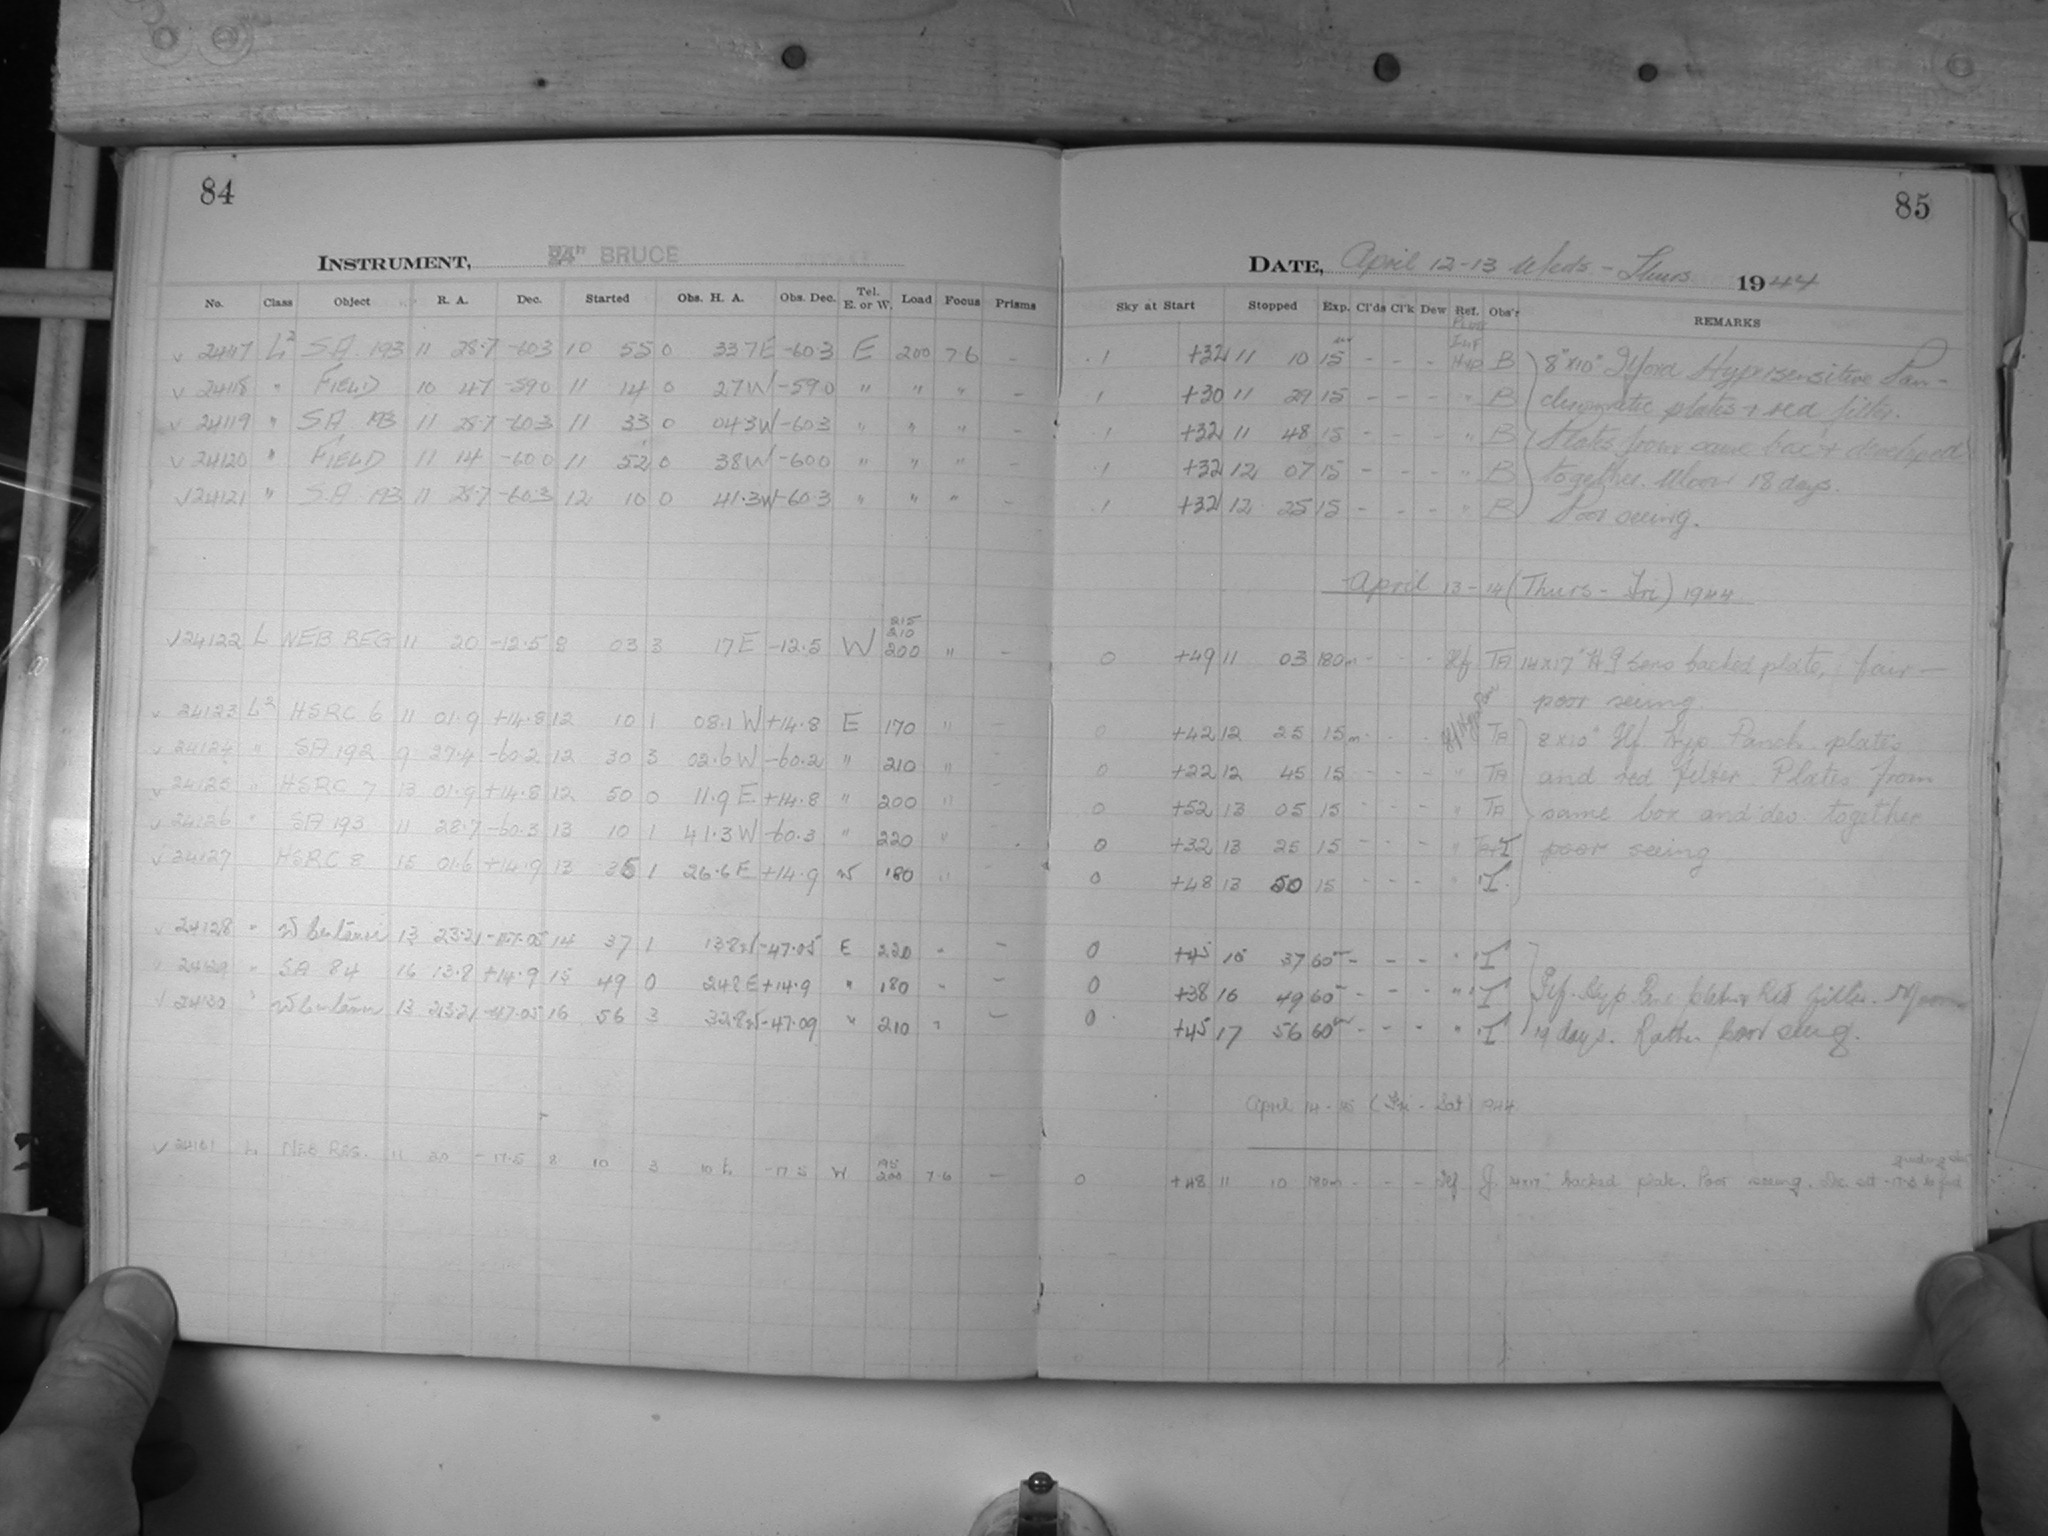 84
INSTRUMENT, 24" BRUCE
No. Class Object R. A. Dec. Started Obs. H. A. Obs. Dec. Tel. E. or W. Load Focus Prisms
√ 24117 L² SA 193 11 28.7 -60.3 10 55 0 33.7E -60.3 E 200 7.6 -
√ 24118 " FIELD 10 47 -59.0 11 14 0 27W -59.0 " " " -
√ 24119 " SA 193 11 28.7 -60.3 11 33 0 04.3W -60.3 " " " -
√ 24120 " FIELD 11 14 -60.0 11 52 0 38W -60.0 " " " -
√ 24121 " SA 193 11 28.7 -60.3 12 10 0 41.3W -60.3 " " " -
215
210
√ 24122 L NEB REG 11 20 -12.5 8 03 3 17E -12.5 W 200 " -
√ 24123 L² HSRC 6 11 01.9 +14.8 12 10 1 08.1W +14.8 E 170 " -
√ 24124 " SA 192 9 27.4 -60.2 12 30 3 02.6W -60.2 " 210 " -
√ 24125 " HSRC 7 13 01.9 +14.8 12 50 0 11.9E +14.8 " 200 " -
√ 24126 " SA 193 11 28.7 -60.3 13 10 1 41.3W -60.3 " 220 " -
√ 24127 HSRC 8 15 01.6 +14.9 13 35 1 26.6E +14.9 W 180 " -
√ 24128 " 13 23.21 -47.05 14 37 1 13.8W -47.05 E 220 " -
√ 24129 " SA 84 16 13.8 +14.9 15 49 0 24.8E +14.9 " 180 " -
√ 24130 " 13 23.21 -47.05 16 56 3 32.8W -47.09 " 210 " -
195
√ 24131 L NEB REG. 11 20 -17.5 8 10 3 10 E -17.5 W 200 7.6 -
85
DATE, April 12-13 Weds - Thurs 1944
Sky at Start Stopped Exp. Cl'ds Cl'k Dew Ref. Obs'r REMARKS
.1 +32 11 10 15 - - - Hyp B 8"x10" Ilford Hypersensitive Pan-
1 +30 11 29 15 - - - " B chromatic plates + red filter.
.1 +32 11 48 15 - - - " B Plates from same box + developed
.1 +32 12 07 15 - - - " B together. Moon 18 days.
.1 +32 12 25 15 - - - " B Poor seeing.
April 13-14 (Thurs - Fri) 1944
0 +49 11 03 180m - - - Ilf TA 14x17" backed plate, fair -
poor seeing.
0 +42 12 25 15m - - - TA 8x10" Ilf. Hyp. Panch. plates
0 +22 12 45 15 - - - " TA and red filter. Plates from
0 +52 13 05 15 - - - " TA same box and dev. together
0 +32 13 25 15 - - - " poor seeing
0 +48 13 50 15 - - - " I
0 +45 15 37 60m - - - " I
0 +38 16 49 60m - - - " I Ilf. Hyp. Pan. plates Red filter. Moon
0 +45 17 56 60m - - - " I 19 days. Rather poor seeing.
April 14-15 (Fri - Sat) 1944
0 +48 11 10 180m - - - Ilf J. 14x17" backed plate. Poor seeing.